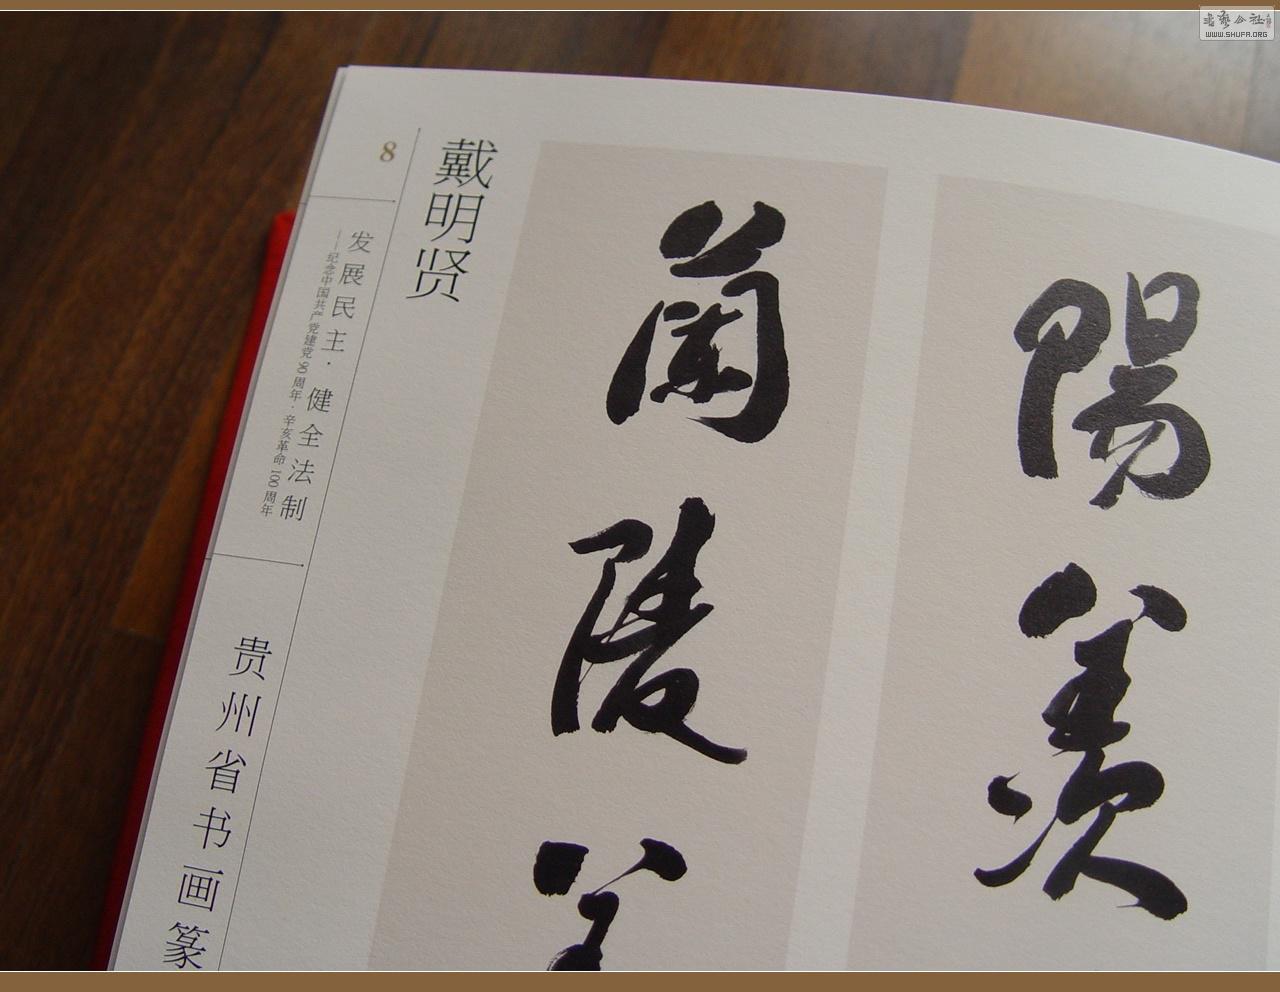 书艺公社
WWW.SHUFA.ORG
8
戴明贤
发展民主·健全法制
——纪念中国共产党建党90周年·辛亥革命100周年
贵州省书画篆
陽羨
蘭陵